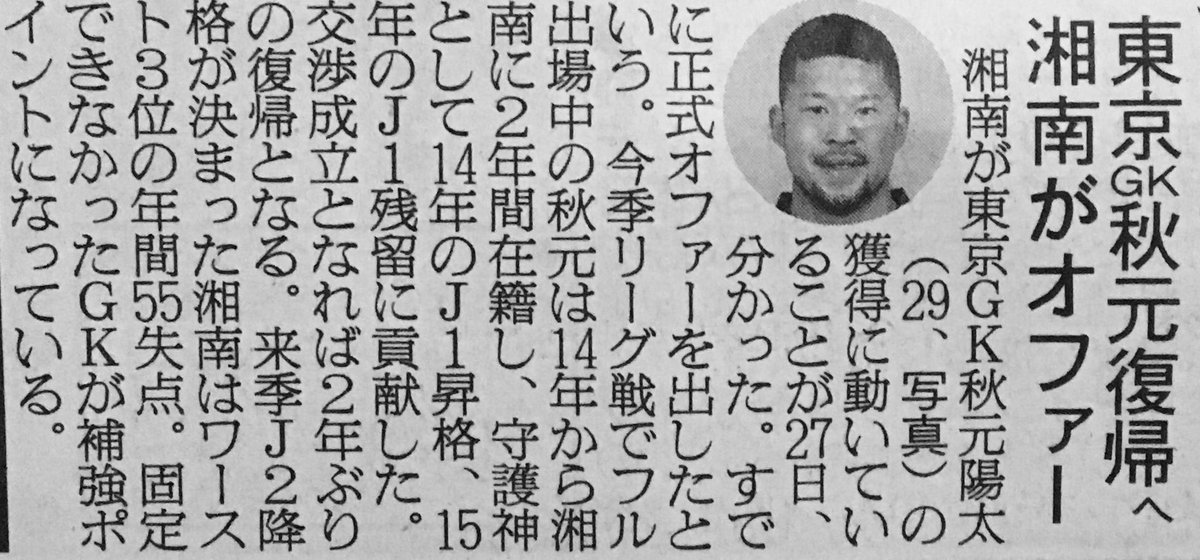 東京GK秋元復帰へ
湘南がオファー
湘南が東京GK秋元陽太
（29、写真）の
獲得に動いてい
ることが27日、
分かった。すで
に正式オファーを出したと
いう。今季リーグ戦でフル
出場中の秋元は14年から湘
南に2年間在籍し、守護神
として14年のJ1昇格、15
年のJ1残留に貢献した。
交渉成立となれば2年ぶり
の復帰となる。来季J2降
格が決まった湘南はワース
ト3位の年間55失点。固定
できなかったGKが補強ポ
イントになっている。